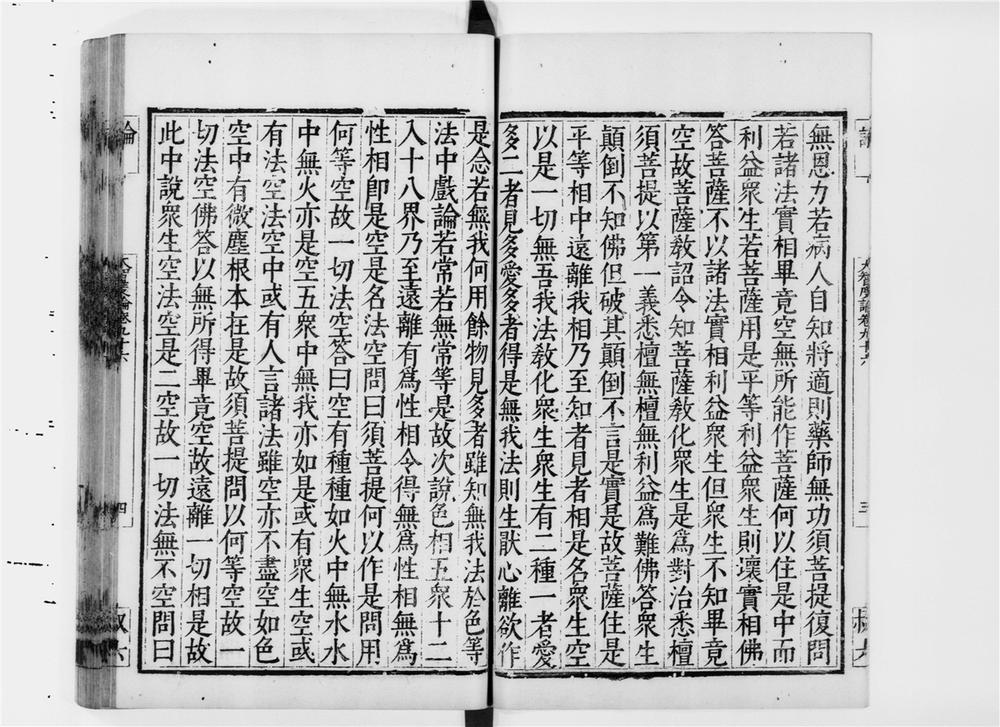 無恩力若病人自知將適則藥師無功須菩提復問
若諸法實相畢竟空無所能作菩薩何以住是中而
利益衆生若菩薩用是平等利益衆生則壞實相佛
答菩薩不以諸法實相利益衆生但衆生不知畢竟
空故菩薩敎詔令知菩薩敎化衆生是爲對治悉檀
須菩提以第一義悉檀無檀無利益爲難佛答衆生
顛倒不知佛但破其顛倒不言是實是故菩薩住是
平等相中遠離我相乃至知者見者相是名衆生空
以是一切無吾我法敎化衆生衆生有二種一者愛
多二者見多愛多者得是無我法則生猒心離欲作
是念若無我何用餘物見多者雖知無我法於色等
法中戲論若常若無常等是故次說色相五衆十二
入十八界乃至遠離有爲性相令得無爲性相無爲
性相卽是空是名法空問曰須菩提何以作是問用
何等空故一切法空答曰空有種種如火中無水水
中無火亦是空五衆中無我亦如是或有衆生空或
有法空法空中或有人言諸法雖空亦不盡空如色
空中有微塵根本在是故須菩提問以何等空故一
切法空佛答以無所得畢竟空故遠離一切相是故
此中說衆生空法空是二空故一切法無不空問曰
論
四